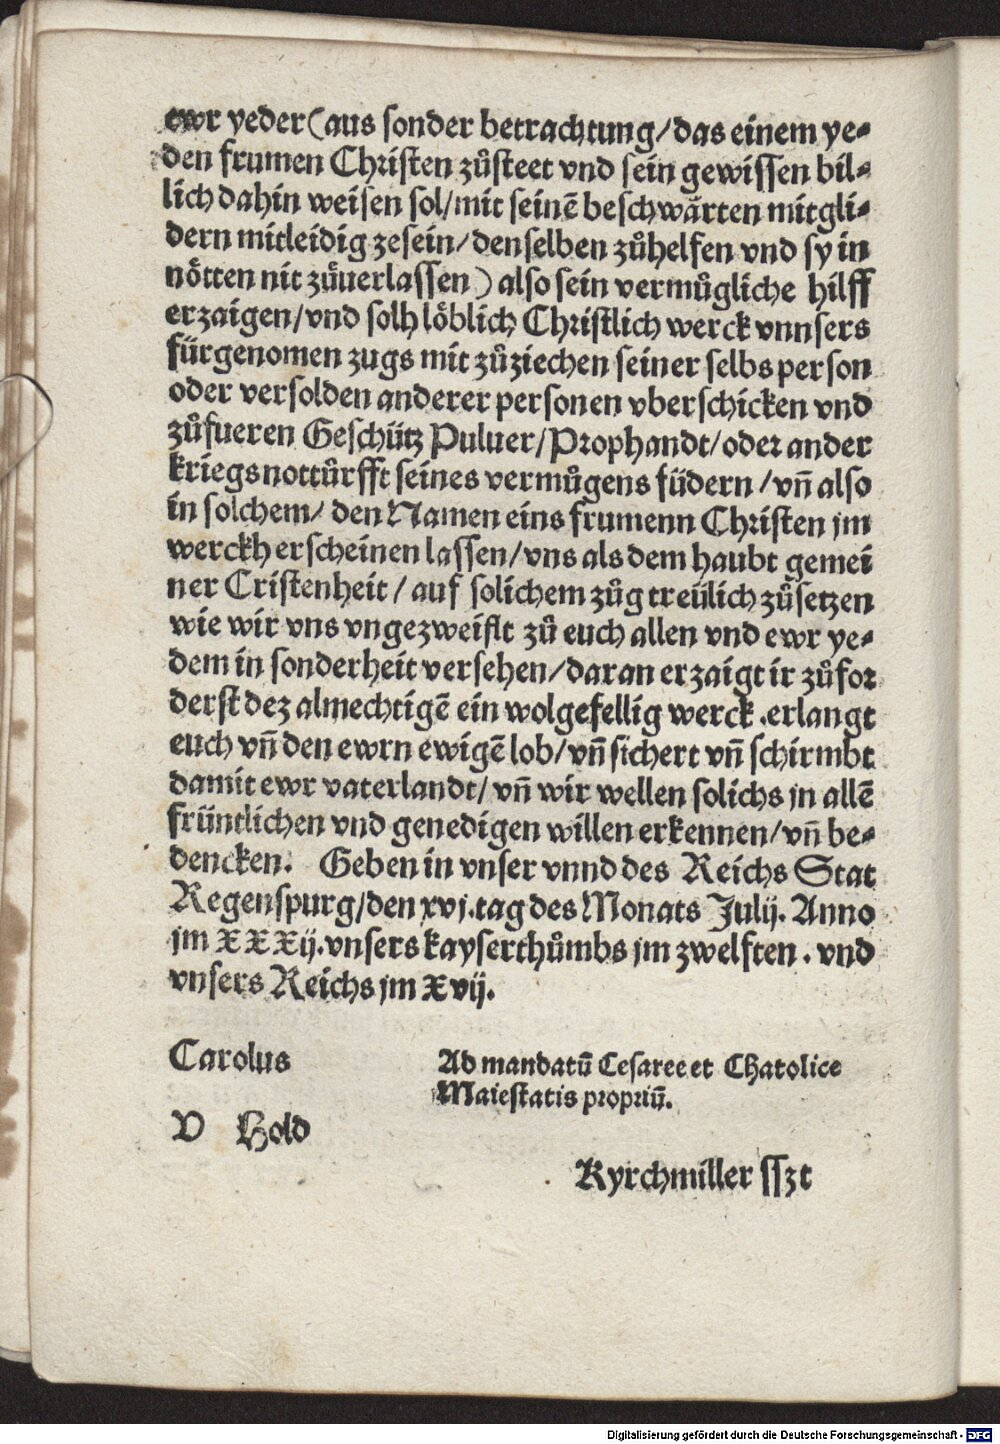 ewr yeder (aus sonder betrachtung/das einem ye-
den frumen Christen zůsteet vnd sein gewissen bil-
lich dahin weisen sol/mit seinē beschwärten mitgli-
dern mitleidig zesein/denselben zůhelfen vnd sy in
nötten nit zůuerlassen) also sein vermůgliche hilff
erzaigen/vnd solh löblich Christlich werck vnnsers
fürgenomen zugs mit zůziechen seiner selbs person
oder versolden anderer personen vberschicken vnd
zůfueren Geschütz Puluer/Prophandt/oder ander
kriegsnottůrfft seines vermůgens füdern/vn̄ also
in solchem/ den Namen eins frumenn Christen jm
werckh erscheinen lassen/vns als dem haubt gemei
ner Cristenheit/ auf solichem zůg treülich zůsetzen
wie wir vns vngezweiflt zů euch allen vnd ewr ye-
dem in sonderheit versehen/daran erzaigt ir zůfor
derst dez almechtigē ein wolgefellig werck.erlangt
euch vn̄ den ewrn ewigē lob/vn̄ sichert vn̄ schirmbt
damit ewr vaterlandt/vn̄ wir wellen solichs jn allē
früntlichen vnd genedigen willen erkennen/vn̄ be-
dencken. Geben in vnser vnnd des Reichs Stat
Regenspurg/den xvj.tag des Monats Julij. Anno
jm XXXij.vnsers kayserthůmbs jm zwelften. vnd
vnsers Reichs jm Xvij.
Carolus
Ad mandatū Cesaree et Chatolice
Maiestatis propriū.
V Hold
Kyrchmiller sszt
Digitalisierung gefördert durch die Deutsche Forschungsgemeinschaft - DFG